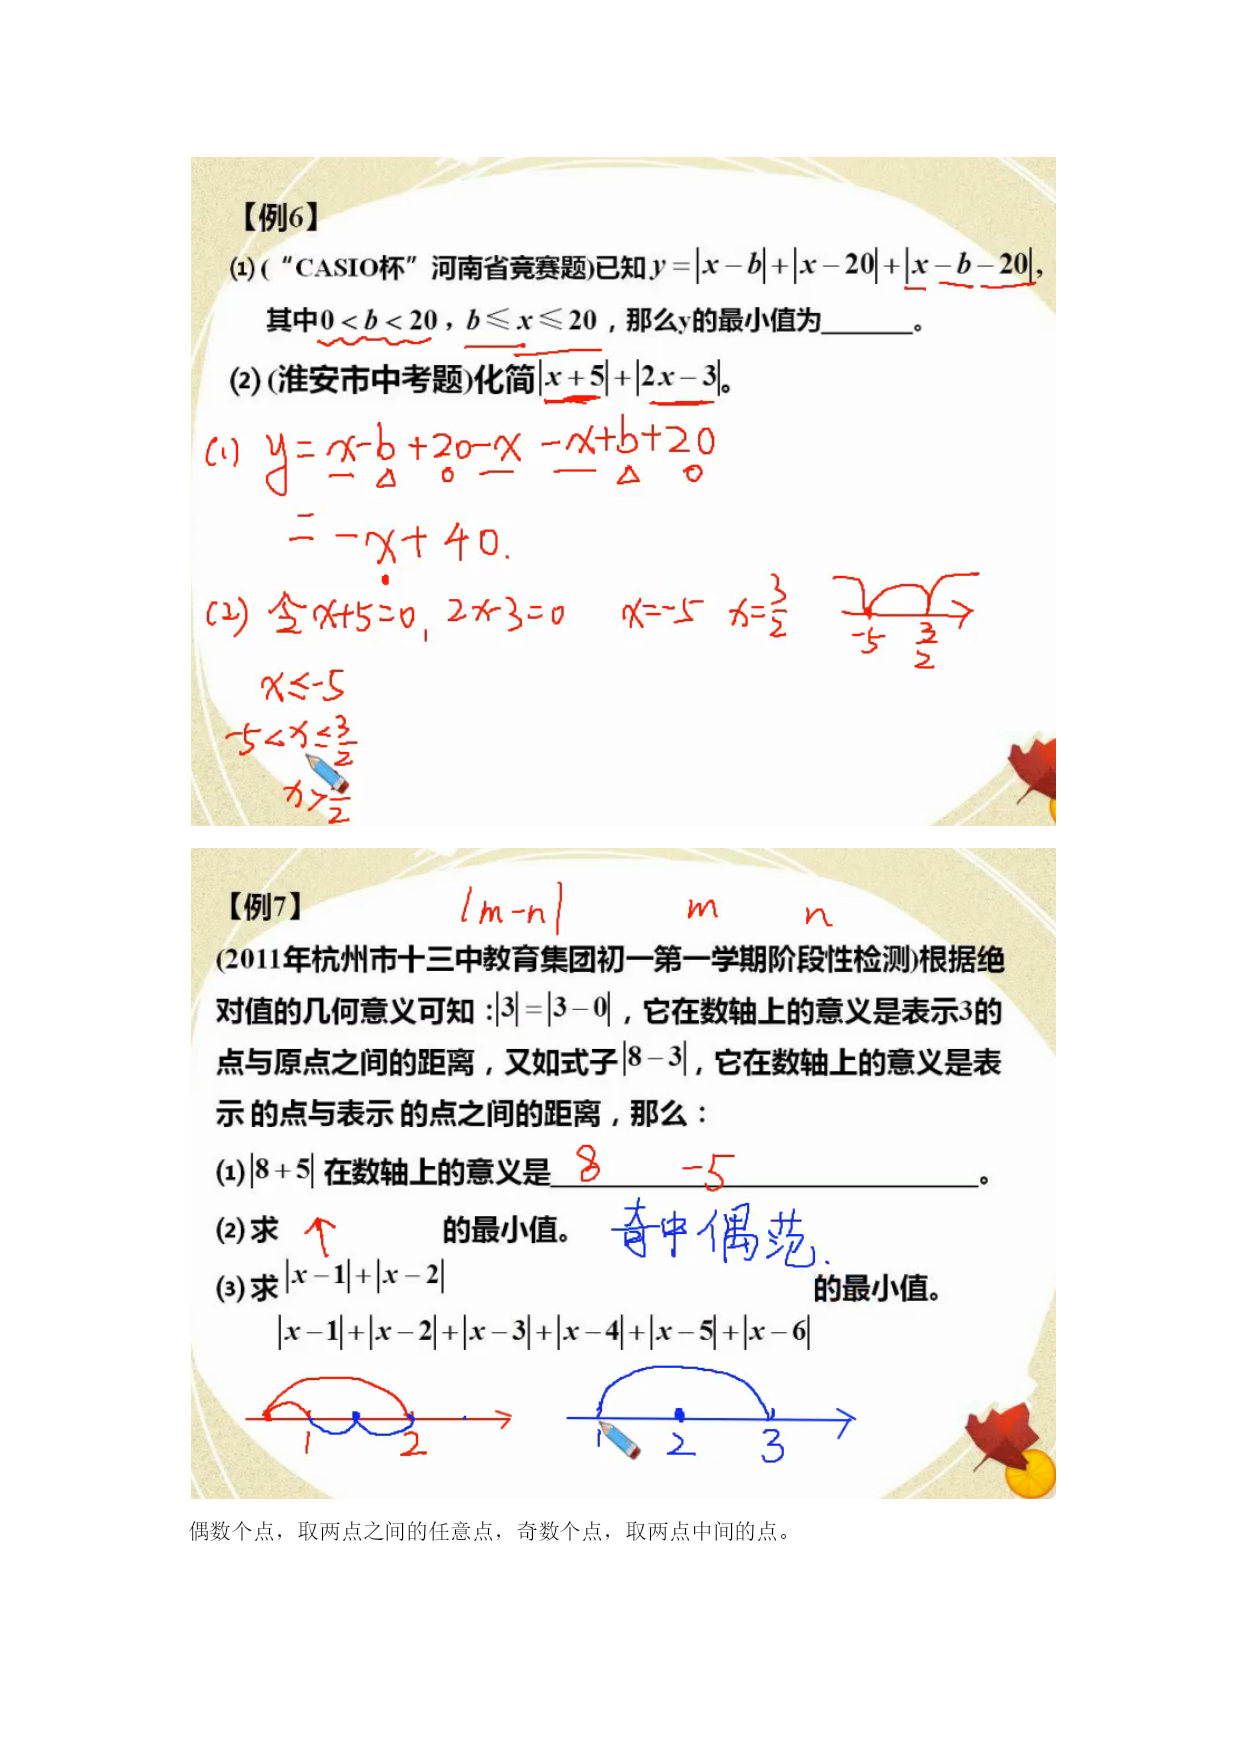 【例6】
⑴(“CASIO杯”河南省竞赛题)已知y=|x-b|+|x-20|+|x-b-20|,
其中0<b<20，b≤x≤20，那么y的最小值为______。
⑵(淮安市中考题)化简|x+5|+|2x-3|。
(1) y=x-b+20-x-x+b+20
=-x+40.
(2) 令x+5=0, 2x-3=0 x=-5 x=3/2
-5 3/2
x≤-5
-5<x≤3/2
x>3/2
【例7】 |m-n| m n
(2011年杭州市十三中教育集团初一第一学期阶段性检测)根据绝
对值的几何意义可知:|3|=|3-0|，它在数轴上的意义是表示3的
点与原点之间的距离，又如式子|8-3|，它在数轴上的意义是表
示 的点与表示 的点之间的距离，那么：
⑴|8+5|在数轴上的意义是 8 -5 。
⑵求 的最小值。 奇中偶范.
⑶求|x-1|+|x-2| 的最小值。
|x-1|+|x-2|+|x-3|+|x-4|+|x-5|+|x-6|
1 2 1 2 3
偶数个点，取两点之间的任意点，奇数个点，取两点中间的点。